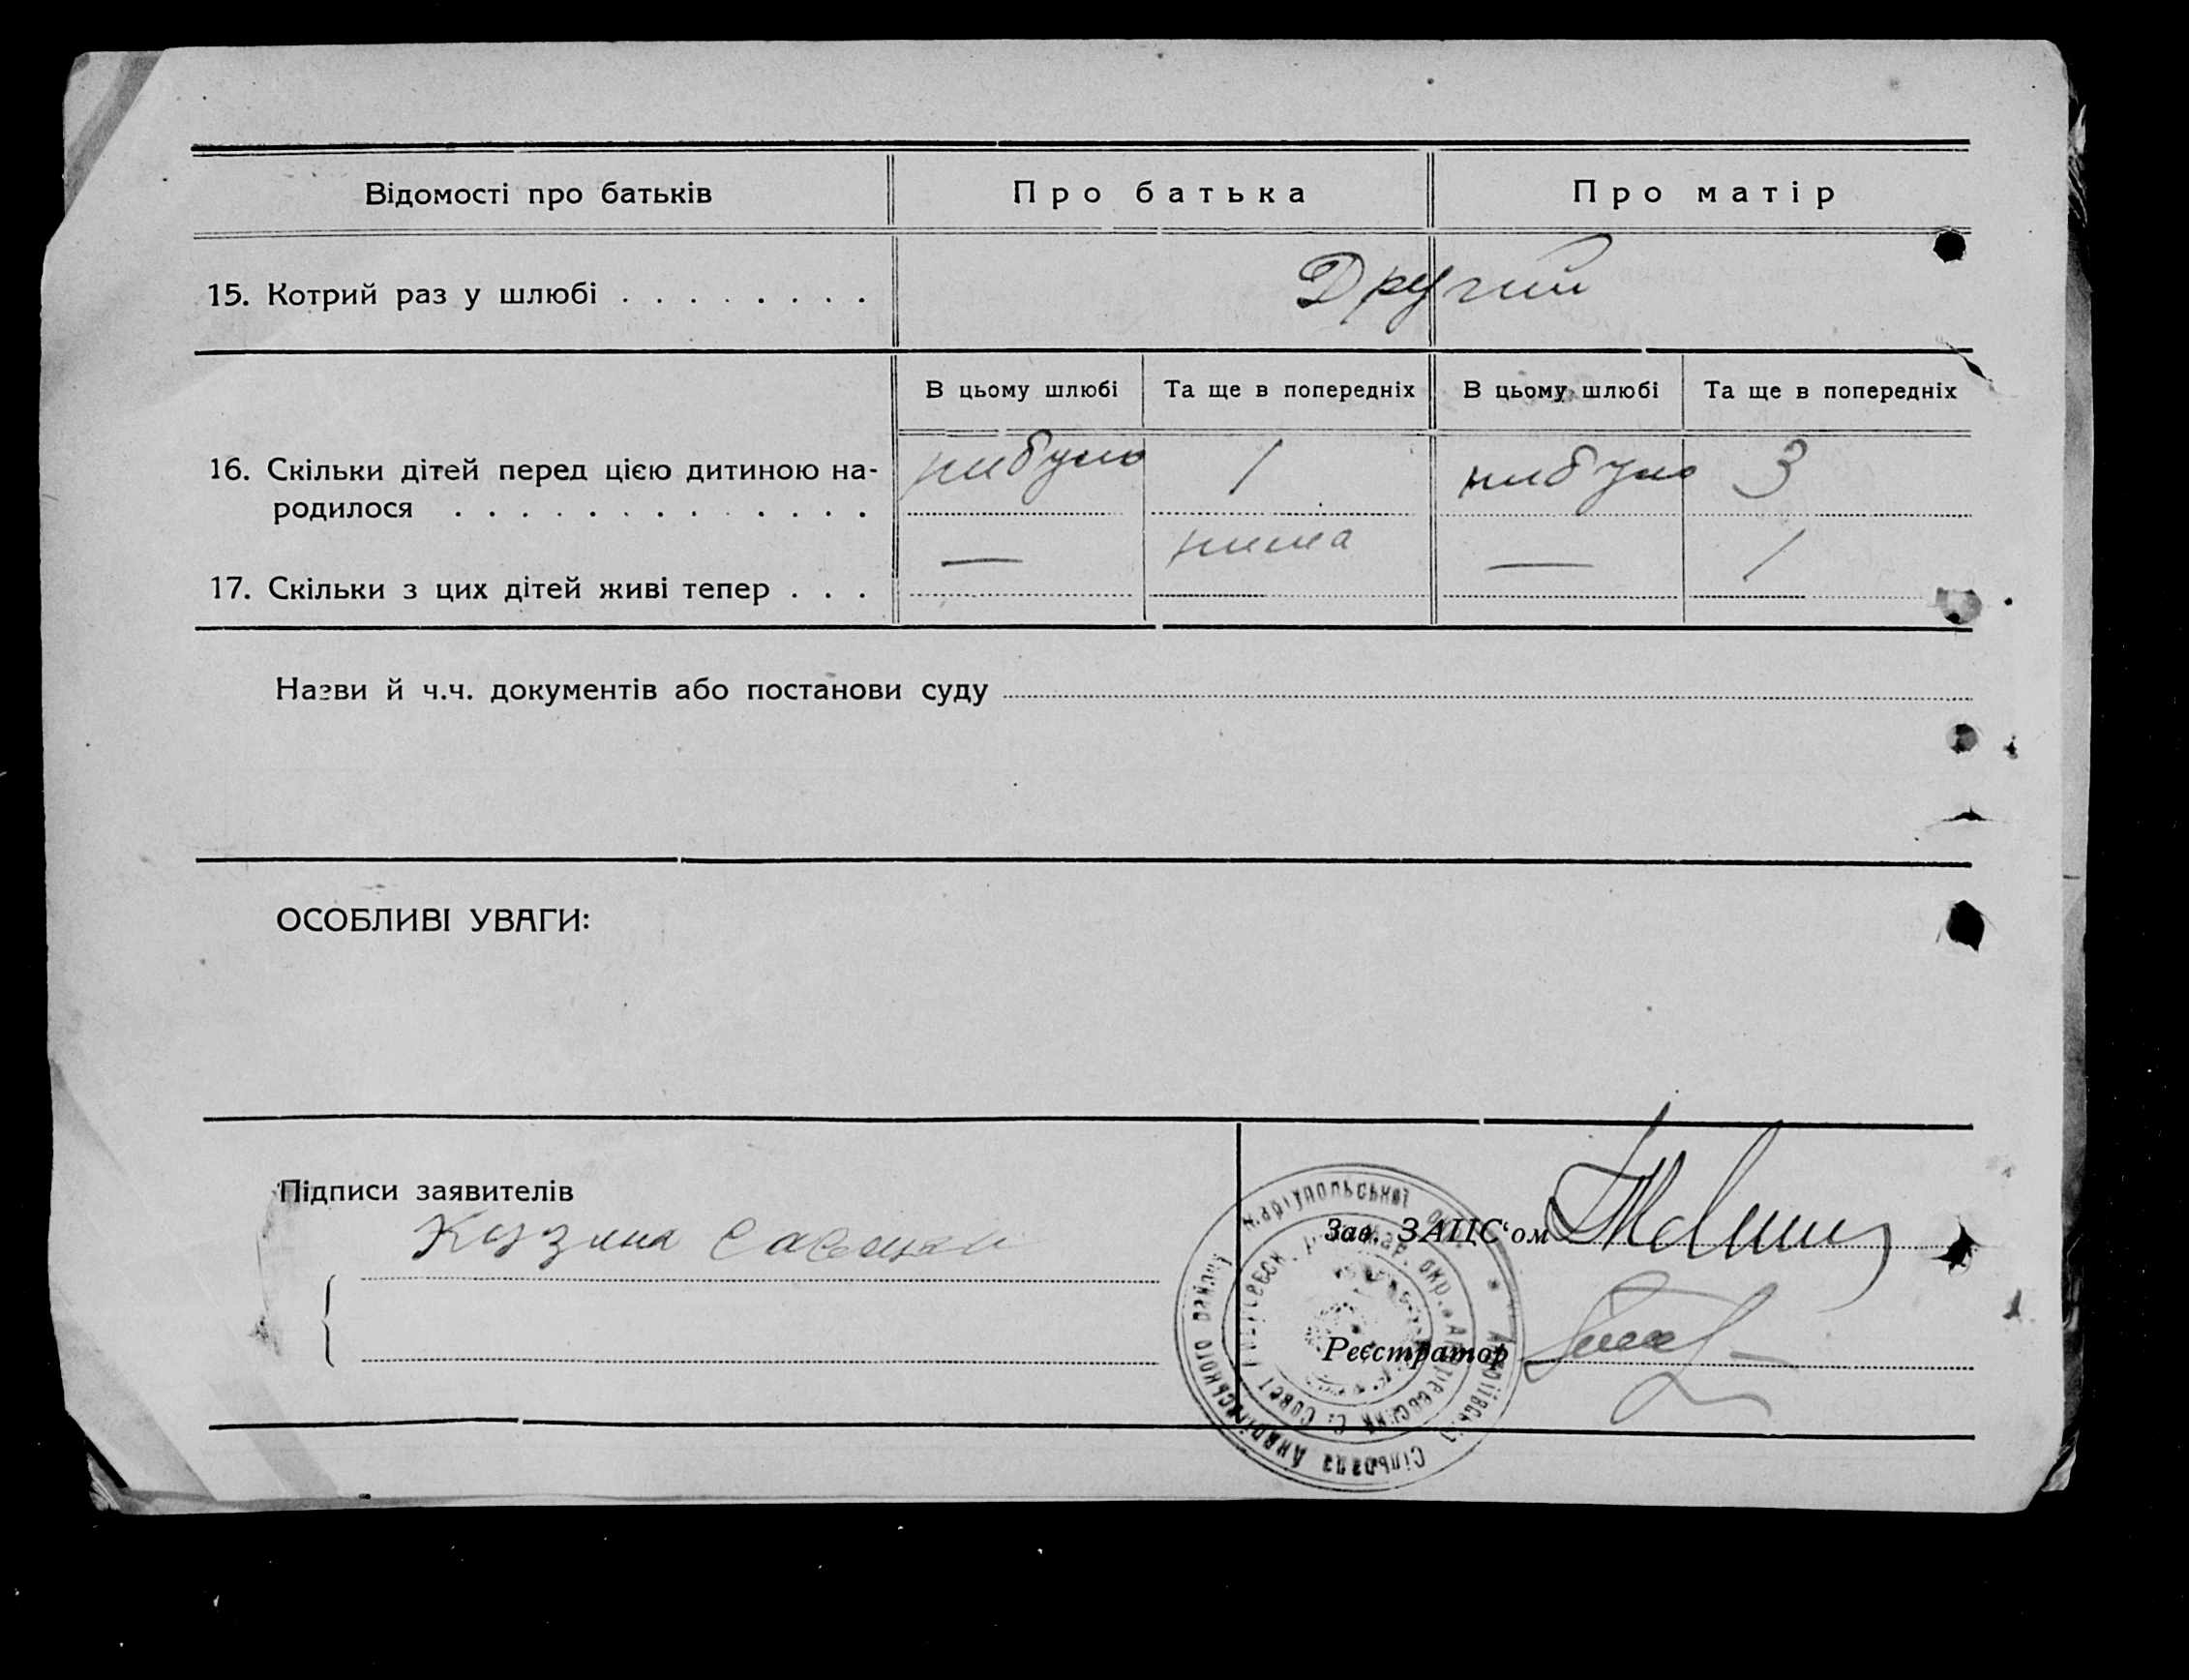 Відомості про батьків Про батька Про матір
15. Котрий раз у шлюбі . . . . . . . . Другий
В цьому шлюбі Та ще в попередніх В цьому шлюбі Та ще в попередніх
16. Скільки дітей перед цією дитиною на-
родилося . . . . . . . . . . . . . нибуло 1 нибуло 3
17. Скільки з цих дітей живі тепер . . . — нима — 1
Назви й ч.ч. документів або постанови суду
ОСОБЛИВІ УВАГИ:
Підписи заявителів
Зав. ЗАЦС‘ом
Реєстратор
Маріупольської окр. * Андріївська Сільрада Андріївського району